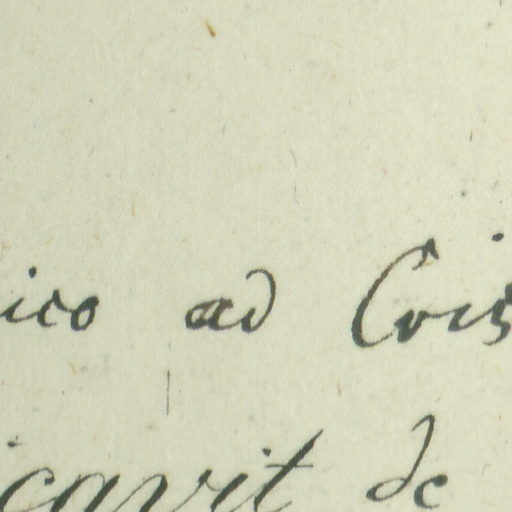 ico ad Cris
icavit de